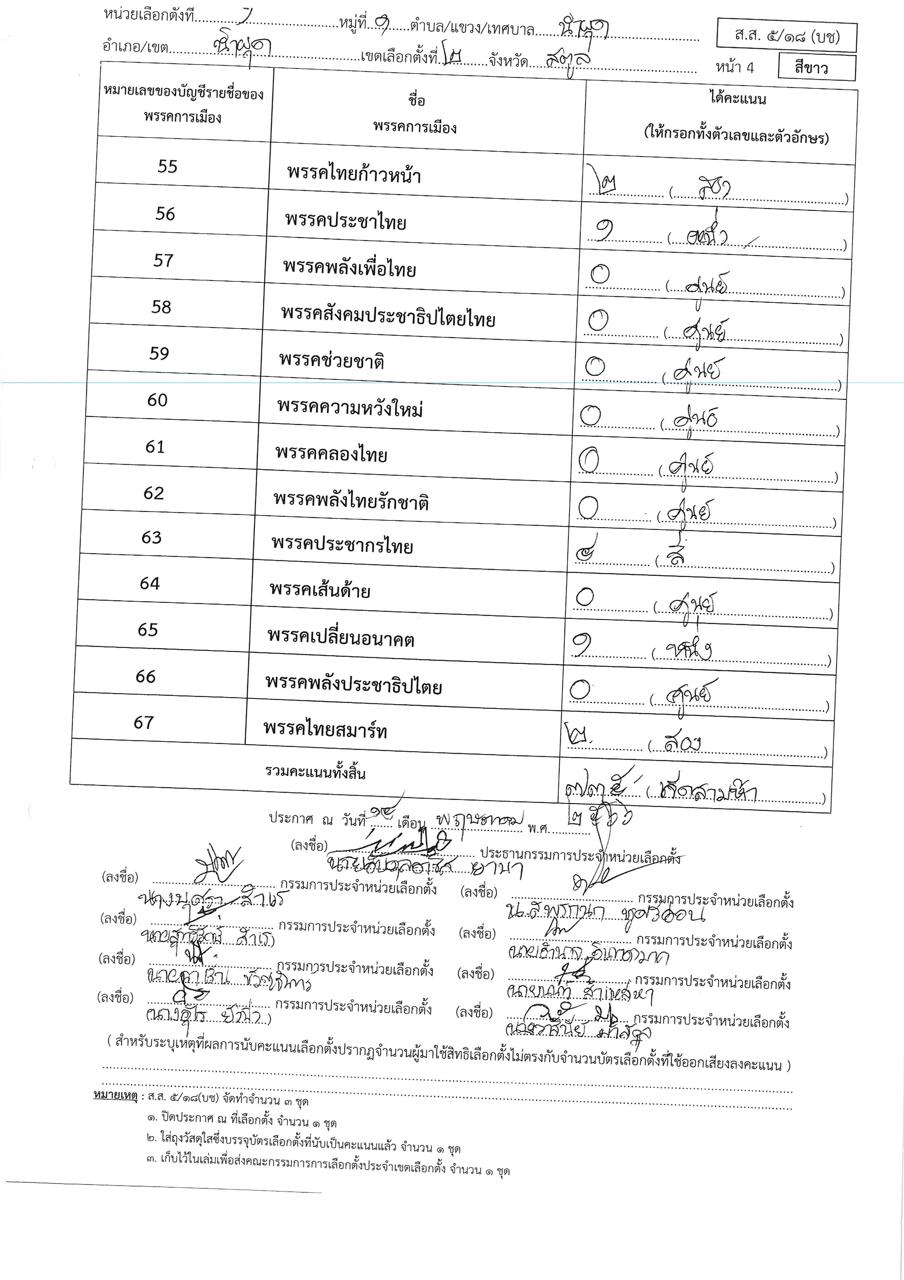 หน่วยเลือกตั้งที่ ๑ หมู่ที่ ๑ ตำบล/แขวง/เทศบาล น้ำผุด
ส.ส. ๕/๑๘ (บช)
อำเภอ/เขต เขตเลือกตั้งที่ ๒ จังหวัด สตูล หน้า 4 สีขาว
หมายเลขของบัญชีรายชื่อของ ชื่อ ได้คะแนน
พรรคการเมือง พรรคการเมือง (ให้กรอกทั้งตัวเลขและตัวอักษร)
55 พรรคไทยก้าวหน้า ๒ ( สอง )
56 พรรคประชาไทย ๑ ( หนึ่ง )
57 พรรคพลังเพื่อไทย ๐ ( ศูนย์ )
58 พรรคสังคมประชาธิปไตยไทย ๐ ( ศูนย์ )
59 พรรคช่วยชาติ ๐ ( ศูนย์ )
60 พรรคความหวังใหม่ ๐ ( ศูนย์ )
61 พรรคคลองไทย ๐ ( ศูนย์ )
62 พรรคพลังไทยรักชาติ ๐ ( ศูนย์ )
63 พรรคประชากรไทย ๔ ( สี่ )
64 พรรคเส้นด้าย ๐ ( ศูนย์ )
65 พรรคเปลี่ยนอนาคต ๑ ( หนึ่ง )
66 พรรคพลังประชาธิปไตย ๐ ( ศูนย์ )
67 พรรคไทยสมาร์ท ๒ ( สอง )
รวมคะแนนทั้งสิ้น ๗๓๕ ( เจ็ดสามห้า )
ประกาศ ณ วันที่ ๑๔ เดือน พฤษภาคม พ.ศ. ๒๕๖๖
(ลงชื่อ) ประธานกรรมการประจำหน่วยเลือกตั้ง
(ลงชื่อ) กรรมการประจำหน่วยเลือกตั้ง (ลงชื่อ) กรรมการประจำหน่วยเลือกตั้ง
(ลงชื่อ) กรรมการประจำหน่วยเลือกตั้ง (ลงชื่อ) กรรมการประจำหน่วยเลือกตั้ง
(ลงชื่อ) กรรมการประจำหน่วยเลือกตั้ง (ลงชื่อ) กรรมการประจำหน่วยเลือกตั้ง
(ลงชื่อ) กรรมการประจำหน่วยเลือกตั้ง (ลงชื่อ) กรรมการประจำหน่วยเลือกตั้ง
( สำหรับระบุเหตุที่ผลการนับคะแนนเลือกตั้งปรากฏจำนวนผู้มาใช้สิทธิเลือกตั้งไม่ตรงกับจำนวนบัตรเลือกตั้งที่ใช้ออกเสียงลงคะแนน )
หมายเหตุ : ส.ส. ๕/๑๘(บช) จัดทำจำนวน ๓ ชุด
๑. ปิดประกาศ ณ ที่เลือกตั้ง จำนวน ๑ ชุด
๒. ใส่ถุงวัสดุใสซึ่งบรรจุบัตรเลือกตั้งที่นับเป็นคะแนนแล้ว จำนวน ๑ ชุด
๓. เก็บไว้ในเล่มเพื่อส่งคณะกรรมการการเลือกตั้งประจำเขตเลือกตั้ง จำนวน ๑ ชุด